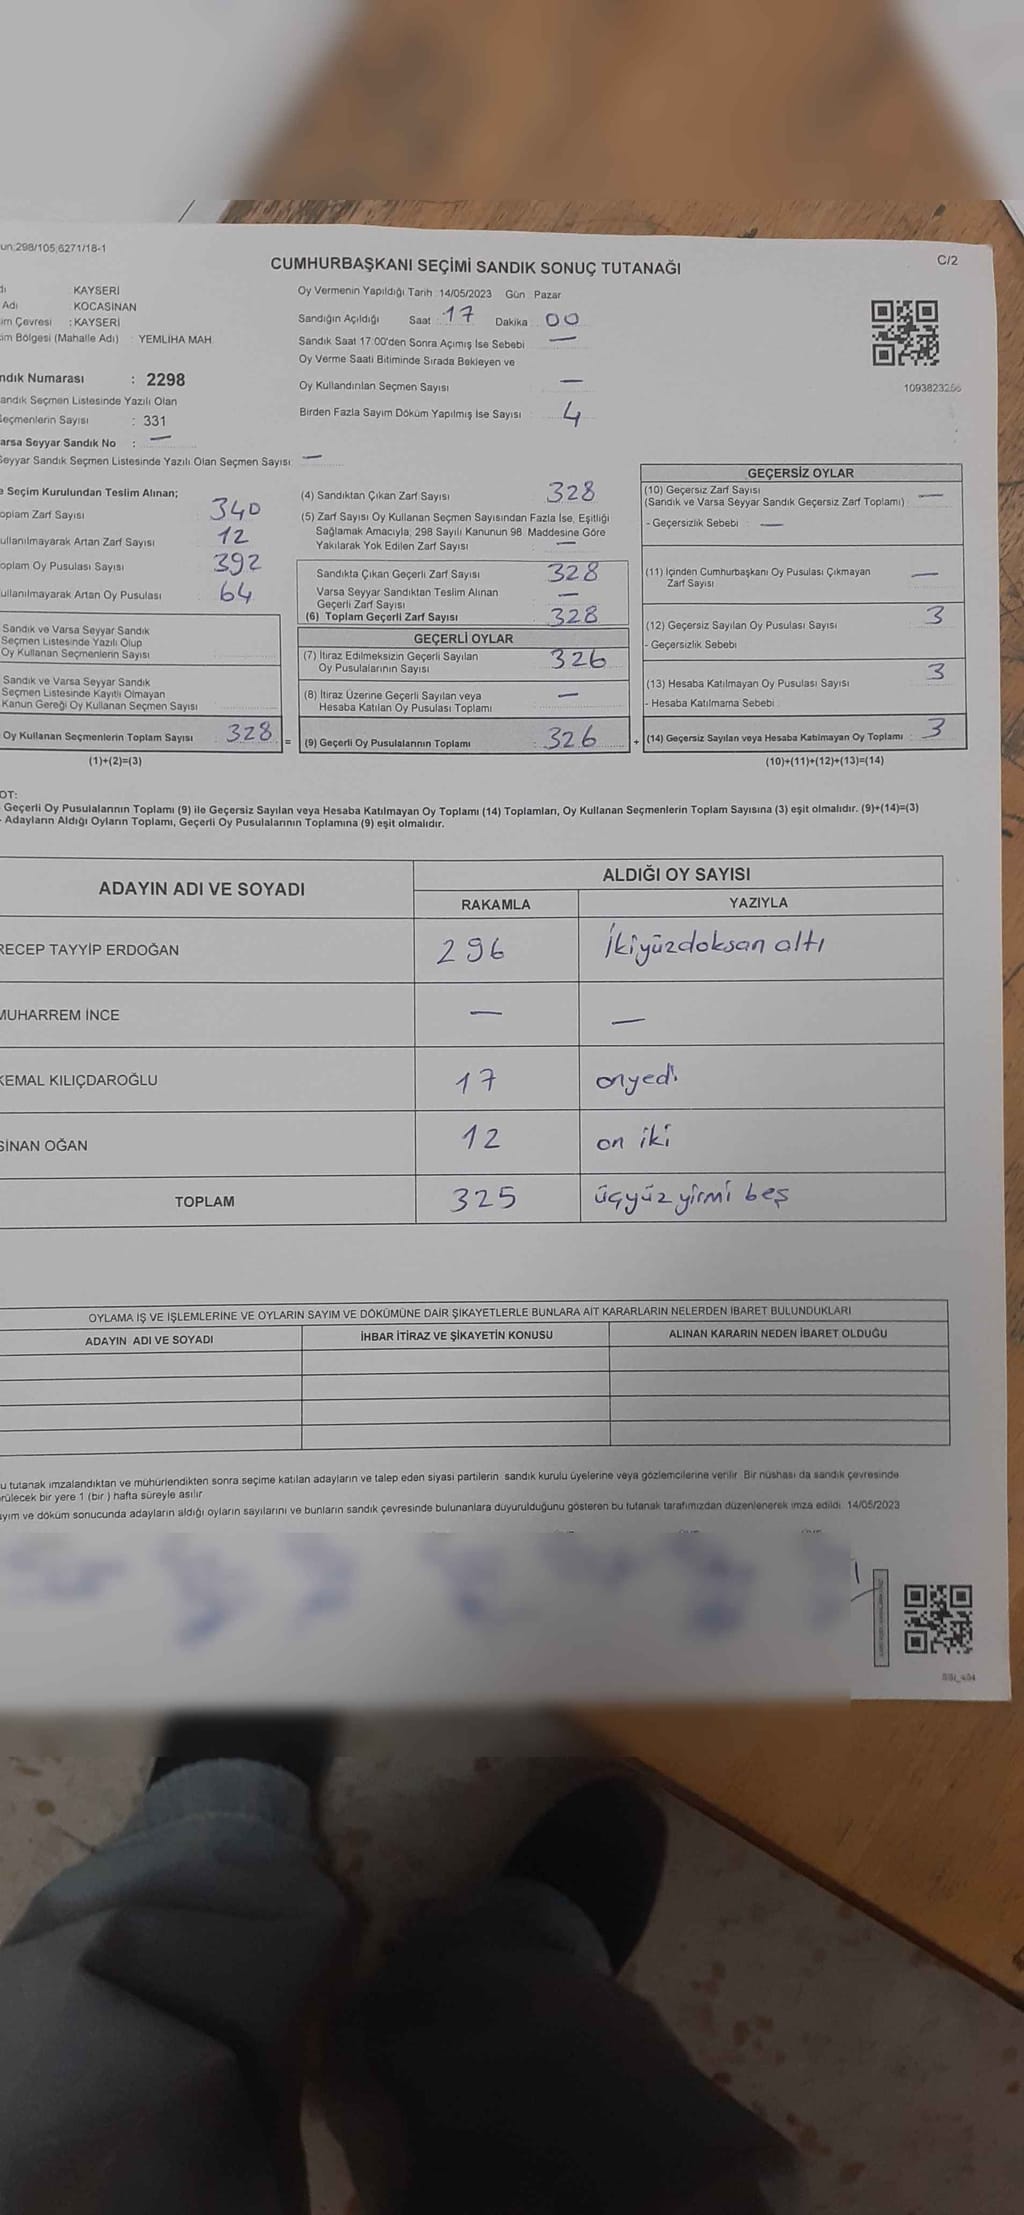 un 298/105,6271/18-1
C/2
CUMHURBAŞKANI SEÇİMİ SANDIK SONUÇ TUTANAĞI
KAYSERİ
Adı KOCASİNAN
im Çevresi : KAYSERİ
im Bölgesi (Mahalle Adı) : YEMLİHA MAH
ndık Numarası : 2298
andık Seçmen Listesinde Yazılı Olan
Seçmenlerin Sayısı : 331
arsa Seyyar Sandık No : —
Seyyar Sandık Seçmen Listesinde Yazılı Olan Seçmen Sayısı: —
Oy Vermenin Yapıldığı Tarih : 14/05/2023 Gün Pazar
Sandığın Açıldığı Saat : 17 Dakika : 00
Sandık Saat 17:00'den Sonra Açımış İse Sebebi : —
Oy Verme Saati Bitiminde Sırada Bekleyen ve
Oy Kullandırılan Seçmen Sayısı —
Birden Fazla Sayım Döküm Yapılmış İse Sayısı : 4
1093823256
e Seçim Kurulundan Teslim Alınan;
oplam Zarf Sayısı 340
ullanılmayarak Artan Zarf Sayısı 12
oplam Oy Pusulası Sayısı 392
ullanılmayarak Artan Oy Pusulası 64
Sandık ve Varsa Seyyar Sandık
Seçmen Listesinde Yazılı Olup
Oy Kullanan Seçmenlerin Sayısı
Sandık ve Varsa Seyyar Sandık
Seçmen Listesinde Kayıtlı Olmayan
Kanun Gereği Oy Kullanan Seçmen Sayısı
Oy Kullanan Seçmenlerin Toplam Sayısı : 328 =
(1)+(2)=(3)
(4) Sandıktan Çıkan Zarf Sayısı 328
(5) Zarf Sayısı Oy Kullanan Seçmen Sayısından Fazla İse, Eşitliği
Sağlamak Amacıyla, 298 Sayılı Kanunun 98. Maddesine Göre
Yakılarak Yok Edilen Zarf Sayısı —
Sandıkta Çıkan Geçerli Zarf Sayısı 328
Varsa Seyyar Sandıktan Teslim Alınan
Geçerli Zarf Sayısı —
(6) Toplam Geçerli Zarf Sayısı 328
GEÇERLİ OYLAR
(7) İtiraz Edilmeksizin Geçerli Sayılan
Oy Pusulalarının Sayısı 326
(8) İtiraz Üzerine Geçerli Sayılan veya
Hesaba Katılan Oy Pusulası Toplamı —
(9) Geçerli Oy Pusulalarının Toplamı : 326 +
GEÇERSİZ OYLAR
(10) Geçersiz Zarf Sayısı
(Sandık ve Varsa Seyyar Sandık Geçersiz Zarf Toplamı) : —
- Geçersizlik Sebebi : —
(11) İçinden Cumhurbaşkanı Oy Pusulası Çıkmayan
Zarf Sayısı —
(12) Geçersiz Sayılan Oy Pusulası Sayısı 3
- Geçersizlik Sebebi
(13) Hesaba Katılmayan Oy Pusulası Sayısı 3
- Hesaba Katılmama Sebebi
(14) Geçersiz Sayılan veya Hesaba Katılmayan Oy Toplamı : 3
(10)+(11)+(12)+(13)=(14)
OT:
Geçerli Oy Pusulalarının Toplamı (9) ile Geçersiz Sayılan veya Hesaba Katılmayan Oy Toplamı (14) Toplamları, Oy Kullanan Seçmenlerin Toplam Sayısına (3) eşit olmalıdır. (9)+(14)=(3)
- Adayların Aldığı Oyların Toplamı, Geçerli Oy Pusulalarının Toplamına (9) eşit olmalıdır.
ADAYIN ADI VE SOYADI
ALDIĞI OY SAYISI
RAKAMLA YAZIYLA
RECEP TAYYİP ERDOĞAN 296 İkiyüzdoksan altı
MUHARREM İNCE — —
KEMAL KILIÇDAROĞLU 17 onyedi
SİNAN OĞAN 12 on iki
TOPLAM 325 üçyüz yirmi beş
OYLAMA İŞ VE İŞLEMLERİNE VE OYLARIN SAYIM VE DÖKÜMÜNE DAİR ŞİKAYETLERLE BUNLARA AİT KARARLARIN NELERDEN İBARET BULUNDUKLARI
ADAYIN ADI VE SOYADI İHBAR İTİRAZ VE ŞİKAYETİN KONUSU ALINAN KARARIN NEDEN İBARET OLDUĞU
u tutanak imzalandıktan ve mühürlendikten sonra seçime katılan adayların ve talep eden siyasi partilerin sandık kurulu üyelerine veya gözlemcilerine verilir. Bir nüshası da sandık çevresinde
rülecek bir yere 1 (bir ) hafta süreyle asılır.
ayım ve döküm sonucunda adayların aldığı oyların sayılarını ve bunların sandık çevresinde bulunanlara duyurulduğunu gösteren bu tutanak tarafımızdan düzenlenerek imza edildi. 14/05/2023